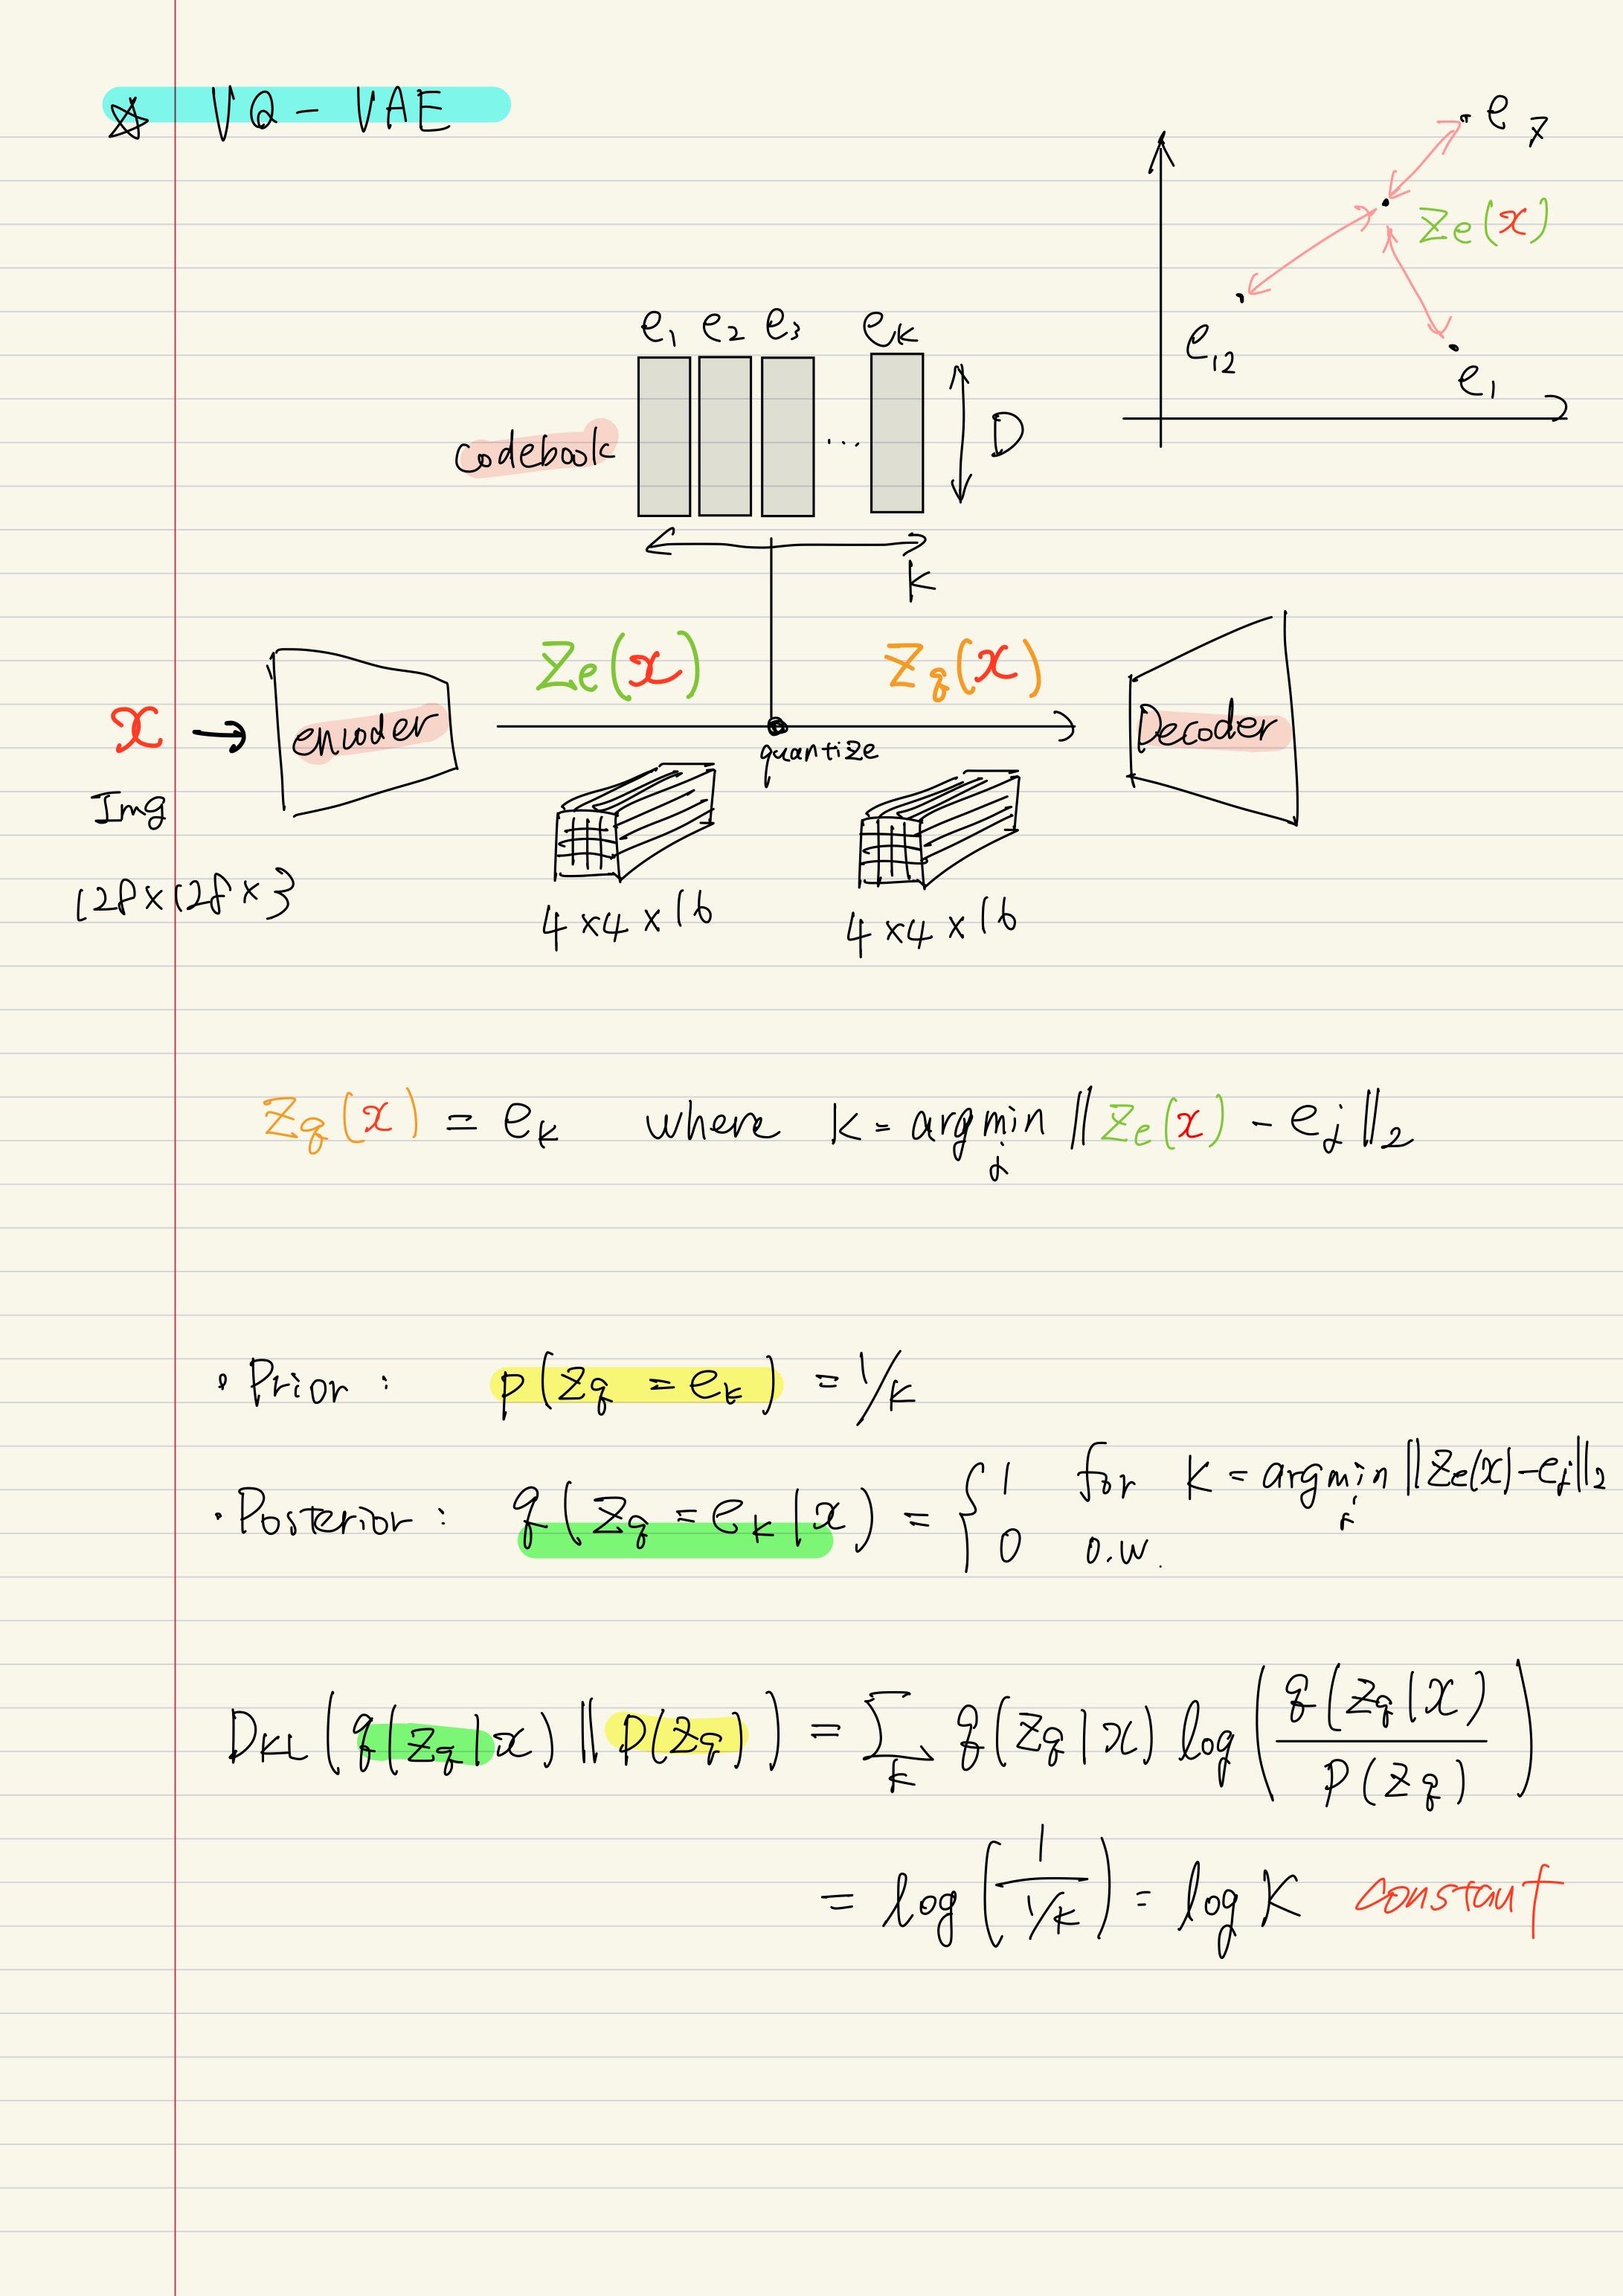 ☆ VQ - VAE
e₇
Ze(x)
e₁₂
e₁
e₁ e₂ e₃ ... eₖ
codebook
D
K
Ze(x)
Zq(x)
x → encoder
quantize
Decoder
Img
128 × 128 × 3
4 × 4 × 16
4 × 4 × 16
Zq(x) = eₖ where k = argmin_j ‖Ze(x) - e_j‖₂
• Prior : p(Zq = eₖ) = 1/K
• Posterior : q(Zq = eₖ | x) = { 1 for k = argmin_j ‖Ze(x) - e_j‖₂
0 o.w.
D_KL(q(Zq|x) ‖ p(Zq)) = Σ_k q(Zq|x) log( q(Zq|x) / P(Zq) )
= log( 1 / (1/K) ) = log K constant